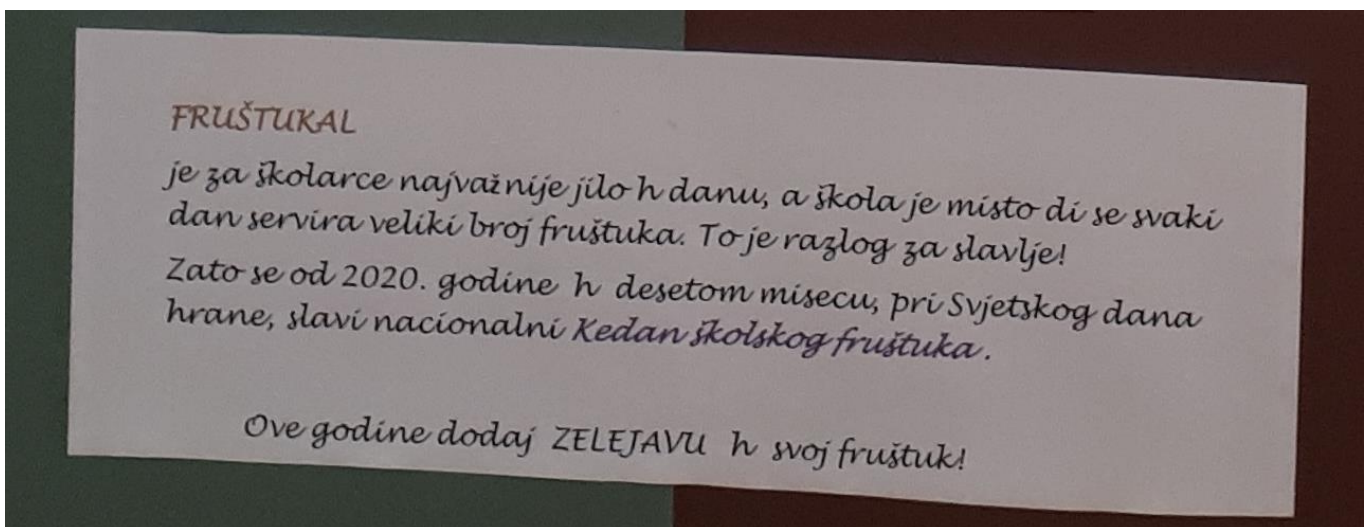 FRUŠTUKAL
je za školarce najvažnije jilo h danu, a škola je misto di se svaki
dan servira veliki broj fruštuka. To je razlog za slavlje!
Zato se od 2020. godine h desetom misecu, pri Svjetskog dana
hrane, slavi nacionalni Kedan školskog fruštuka.
Ove godine dodaj ZELEJAVU h svoj fruštuk!